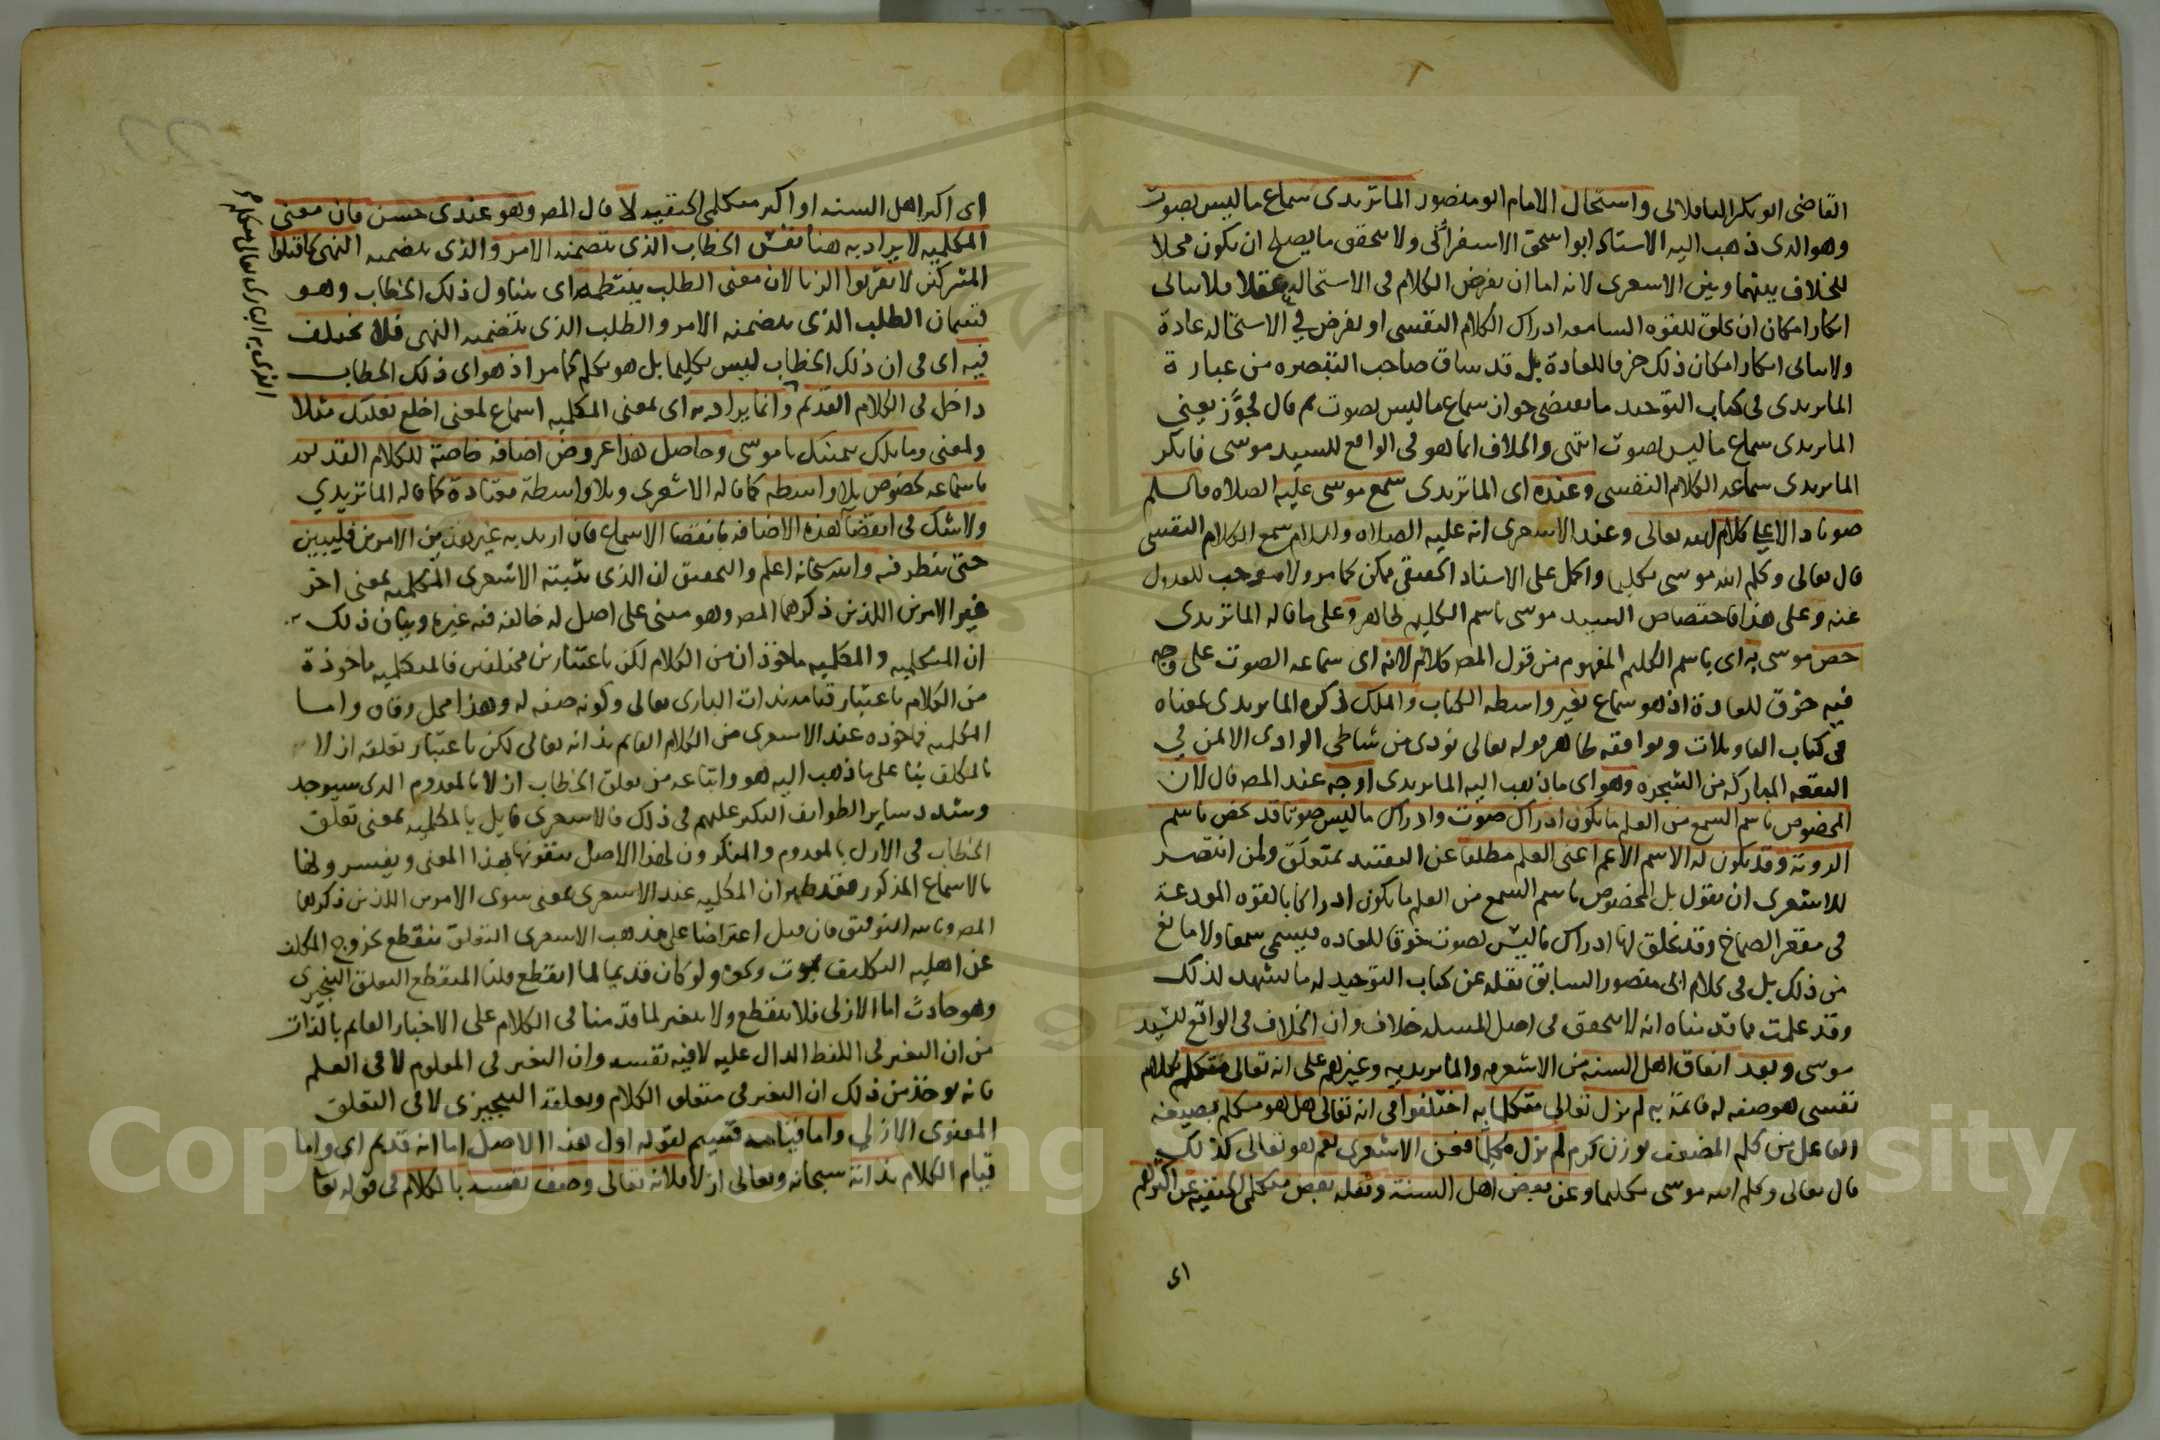 القاضى ابو بكر الباقلانى واستحال الامام ابو منصور الماتريدى سماع ما ليس بصوت
وهو الذى ذهب اليه الاستاذ ابو اسحق الاسفرائى ولا يتحقق ما يصلح ان يكون محلا
للخلاف بينهما وبين الاشعرى لانه اما ان يفرض الكلام فى الاستحالة عقلا فلا يتاتى
انكار امكان ان يخلق للقوه السامعه ادراك الكلام النفسى او يفرض فى الاستحاله عادة
ولا يتاتى انكار امكان ذلك خرقا للعادة بل قد ساق صاحب التبصره من عبارة
الماتريدى فى كتاب التوحيد ما يقتضى جواز سماع ما ليس بصوت ثم قال فجوز يعنى
الماتريدى سماع ما ليس بصوت انتهى والخلاف انما هو فى الواقع للسيد موسى فانكر
الماتريدى سماعه الكلام النفسى وعنده اى الماتريدى سمع موسى عليه الصلاه والسلم
صوتا دالا على كلام الله تعالى وعند الاشعرى انه عليه الصلاه والسلام سمع الكلام النفسى
قال تعالى وكلم الله موسى تكليما واحمل على الاسناد الحقيقى ممكن كما مر ولا موجب للعدول
عنه وعلى هذا فاختصاص السيد موسى باسم الكليم ظاهر وعلى ما قاله الماتريدى
خص موسى به اى باسم الكليم المفهوم من قول المصر كلائم لانه اى سماعه الصوت على وجه
فيه خرق للعادة اذ هو سماع بغير واسطه الكتاب والملك ذكره الماتريدى بمعناه
فى كتاب التاويلات ويوافقه ظاهر قوله تعالى نودى من شاطى الوادى الايمن فى
البقعه المباركه من الشجره وهو اى ما ذهب اليه الماتريدى اوجه عند المصر قال لان
المخصوص باسم السمع من العلم ما يكون ادراك صوت وادراك ما ليس صوتا قد يخص باسم
الروية وقد يكون له الاسم الاعم اعنى العلم مطلقا عن التقييد بمتعلق ولمن انتصر
للاشعرى ان يقول بل المخصوص باسم السمع من العلم ما يكون ادراكا بالقوه المودعة
فى مقعر الصماخ وقد يخلق لها ادراك ما ليس بصوت خرقا للعاده فيسمى سمعا ولا مانع
من ذلك بل فى كلام ابى منصور السابق نقله عن كتاب التوحيد له ما يشهد لذلك
وقد علمت بما قدمناه انه لا يتحقق فى اصل المسله خلاف وان الخلاف فى الواقع للسيد
موسى وبعد اتفاق اهل السنه من الاشعريه والماتريديه وغيرهم على انه تعالى متكلم بكلام
نفسى هو صفه له قائمة به لم يزل تعالى متكلما به اختلفوا فى انه تعالى هل هو مكلم بصيغه
الفاعل من كلم المضعف بوزن كرم لم يزل مكلما فعن الاشعرى نعم هو تعالى كذلك
قال تعالى وكلم الله موسى تكليما وعن بعض اهل السنة ونقله بعض متكلمى الحنفيه عن اكثرهم
اى
اى اكثر اهل السنه او اكثر متكلمى الحنفيه لا قال المصر وهو عندى حسن فان معنى
المكلميه لا يراد به هنا نفس الخطاب الذى يتضمنه الامر والذى يتضمنه النهى كاقتلوا
المشركين لا تقربوا الزنا لان معنى الطلب ينتظمه اى يتناول ذلك الخطاب وهو
قسمان الطلب الذى يتضمنه الامر والطلب الذى يتضمنه النهى فلا يختلف
فيه اى فى ان ذلك الخطاب ليس تكليما بل هو تكلم كما مر اذ هو اى ذلك الخطاب
داخل فى الكلام القديم وانما يراد به اى بمعنى المكلميه اسماع لمعنى اخلع نعليك مثلا
ولمعنى وما تلك بيمينك يا موسى وحاصل هذا عروض اضافه خاصة للكلام القديم
باسماعه لمخصوص بلا واسطه كما قاله الاشعرى وبلا واسطة معتادة كما قاله الماتريدى
ولا شك فى انقضا هذه الاضافه بانقضا الاسماع فان اريد به غير هذين الامرين فليبين
حتى ينظر فيه والله سبحانه اعلم والتحقيق ان الذى يثبته الاشعرى المكلميه بمعنى اخر
غير الامرين اللذين ذكرهما المصر وهو مبنى على اصل له خالفه فيه غيره وبيان ذلك
ان المتكلميه والمكلميه ماخوذان من الكلام لكن باعتبارين مختلفين فالمتكلميه ماخوذة
من الكلام باعتبار قيامه بذات البارى تعالى وكونه صفه له وهذا محل وفاق واما
المكلميه فماخوذه عند الاشعرى من الكلام القايم بذاته تعالى لكن باعتبار تعلقه ازلا
بالمكلف بنا على ما ذهب اليه هو واتباعه من تعلق الخطاب ازلا بالمعدوم الذى سيوجد
وشدد ساير الطوايف النكير عليهم فى ذلك فالاشعرى قايل بالمكلميه بمعنى تعلق
الخطاب فى الازل بالمعدوم والمنكرون لهذا الاصل ينفونها بهذا المعنى ويفسرونها
بالاسماع المذكور فقد ظهر ان المكلميه عند الاشعرى بمعنى سوى الامرين اللذين ذكرهما
المصر وبالله التوفيق فان قيل اعتراضا على مذهب الاشعرى التعلق ينقطع بخروج المكلف
عن اهليه التكليف بموت ونحوه ولو كان قديما لما انقطع قلنا المنقطع التعلق التنجيزى
وهو حادث اما الازلى فلا ينقطع ولا يتغير لما قدمنا فى الكلام على الاخبار القايم بالذات
من ان التغير فى اللفظ الدال عليه لا فيه نفسه وان التغير فى المعلوم لا فى العلم
فانه يوخذ من ذلك ان التغير فى متعلق الكلام وتعلقه التنجيزى لا فى التعلق
المعنوى الازلى واما قيامه قسيم لقوله اول هذا الاصل اما انه قديم اى واما
قيام الكلام بذاته سبحانه وتعالى ازلا فلانه تعالى وصف نفسه بالكلام فى قوله تعا
Copyright © King Saud University